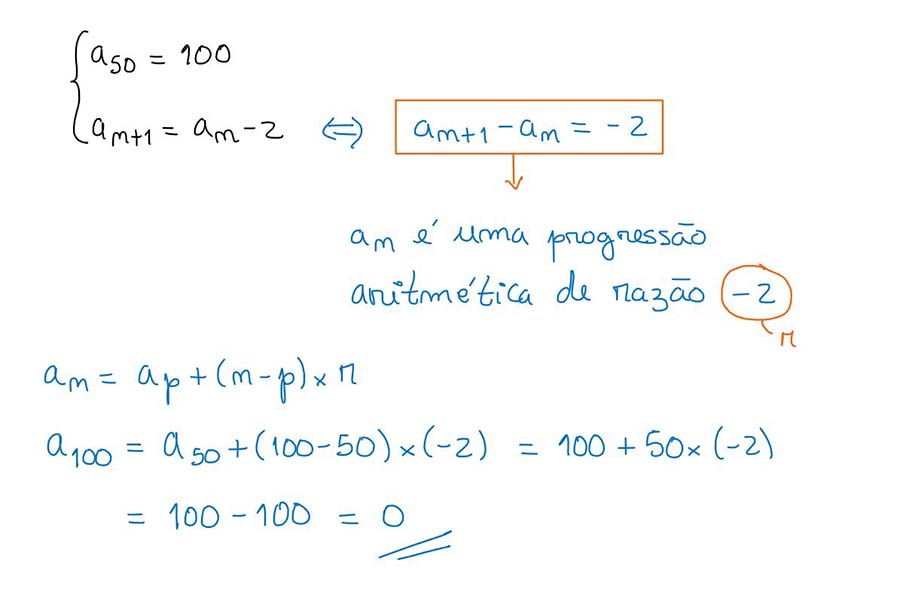 a₅₀ = 100
aₙ₊₁ = aₙ - 2 ⇔ aₙ₊₁ - aₙ = -2
aₙ é uma progressão
aritmética de razão -2
r
aₙ = aₚ + (n - p) × r
a₁₀₀ = a₅₀ + (100 - 50) × (-2) = 100 + 50 × (-2)
= 100 - 100 = 0